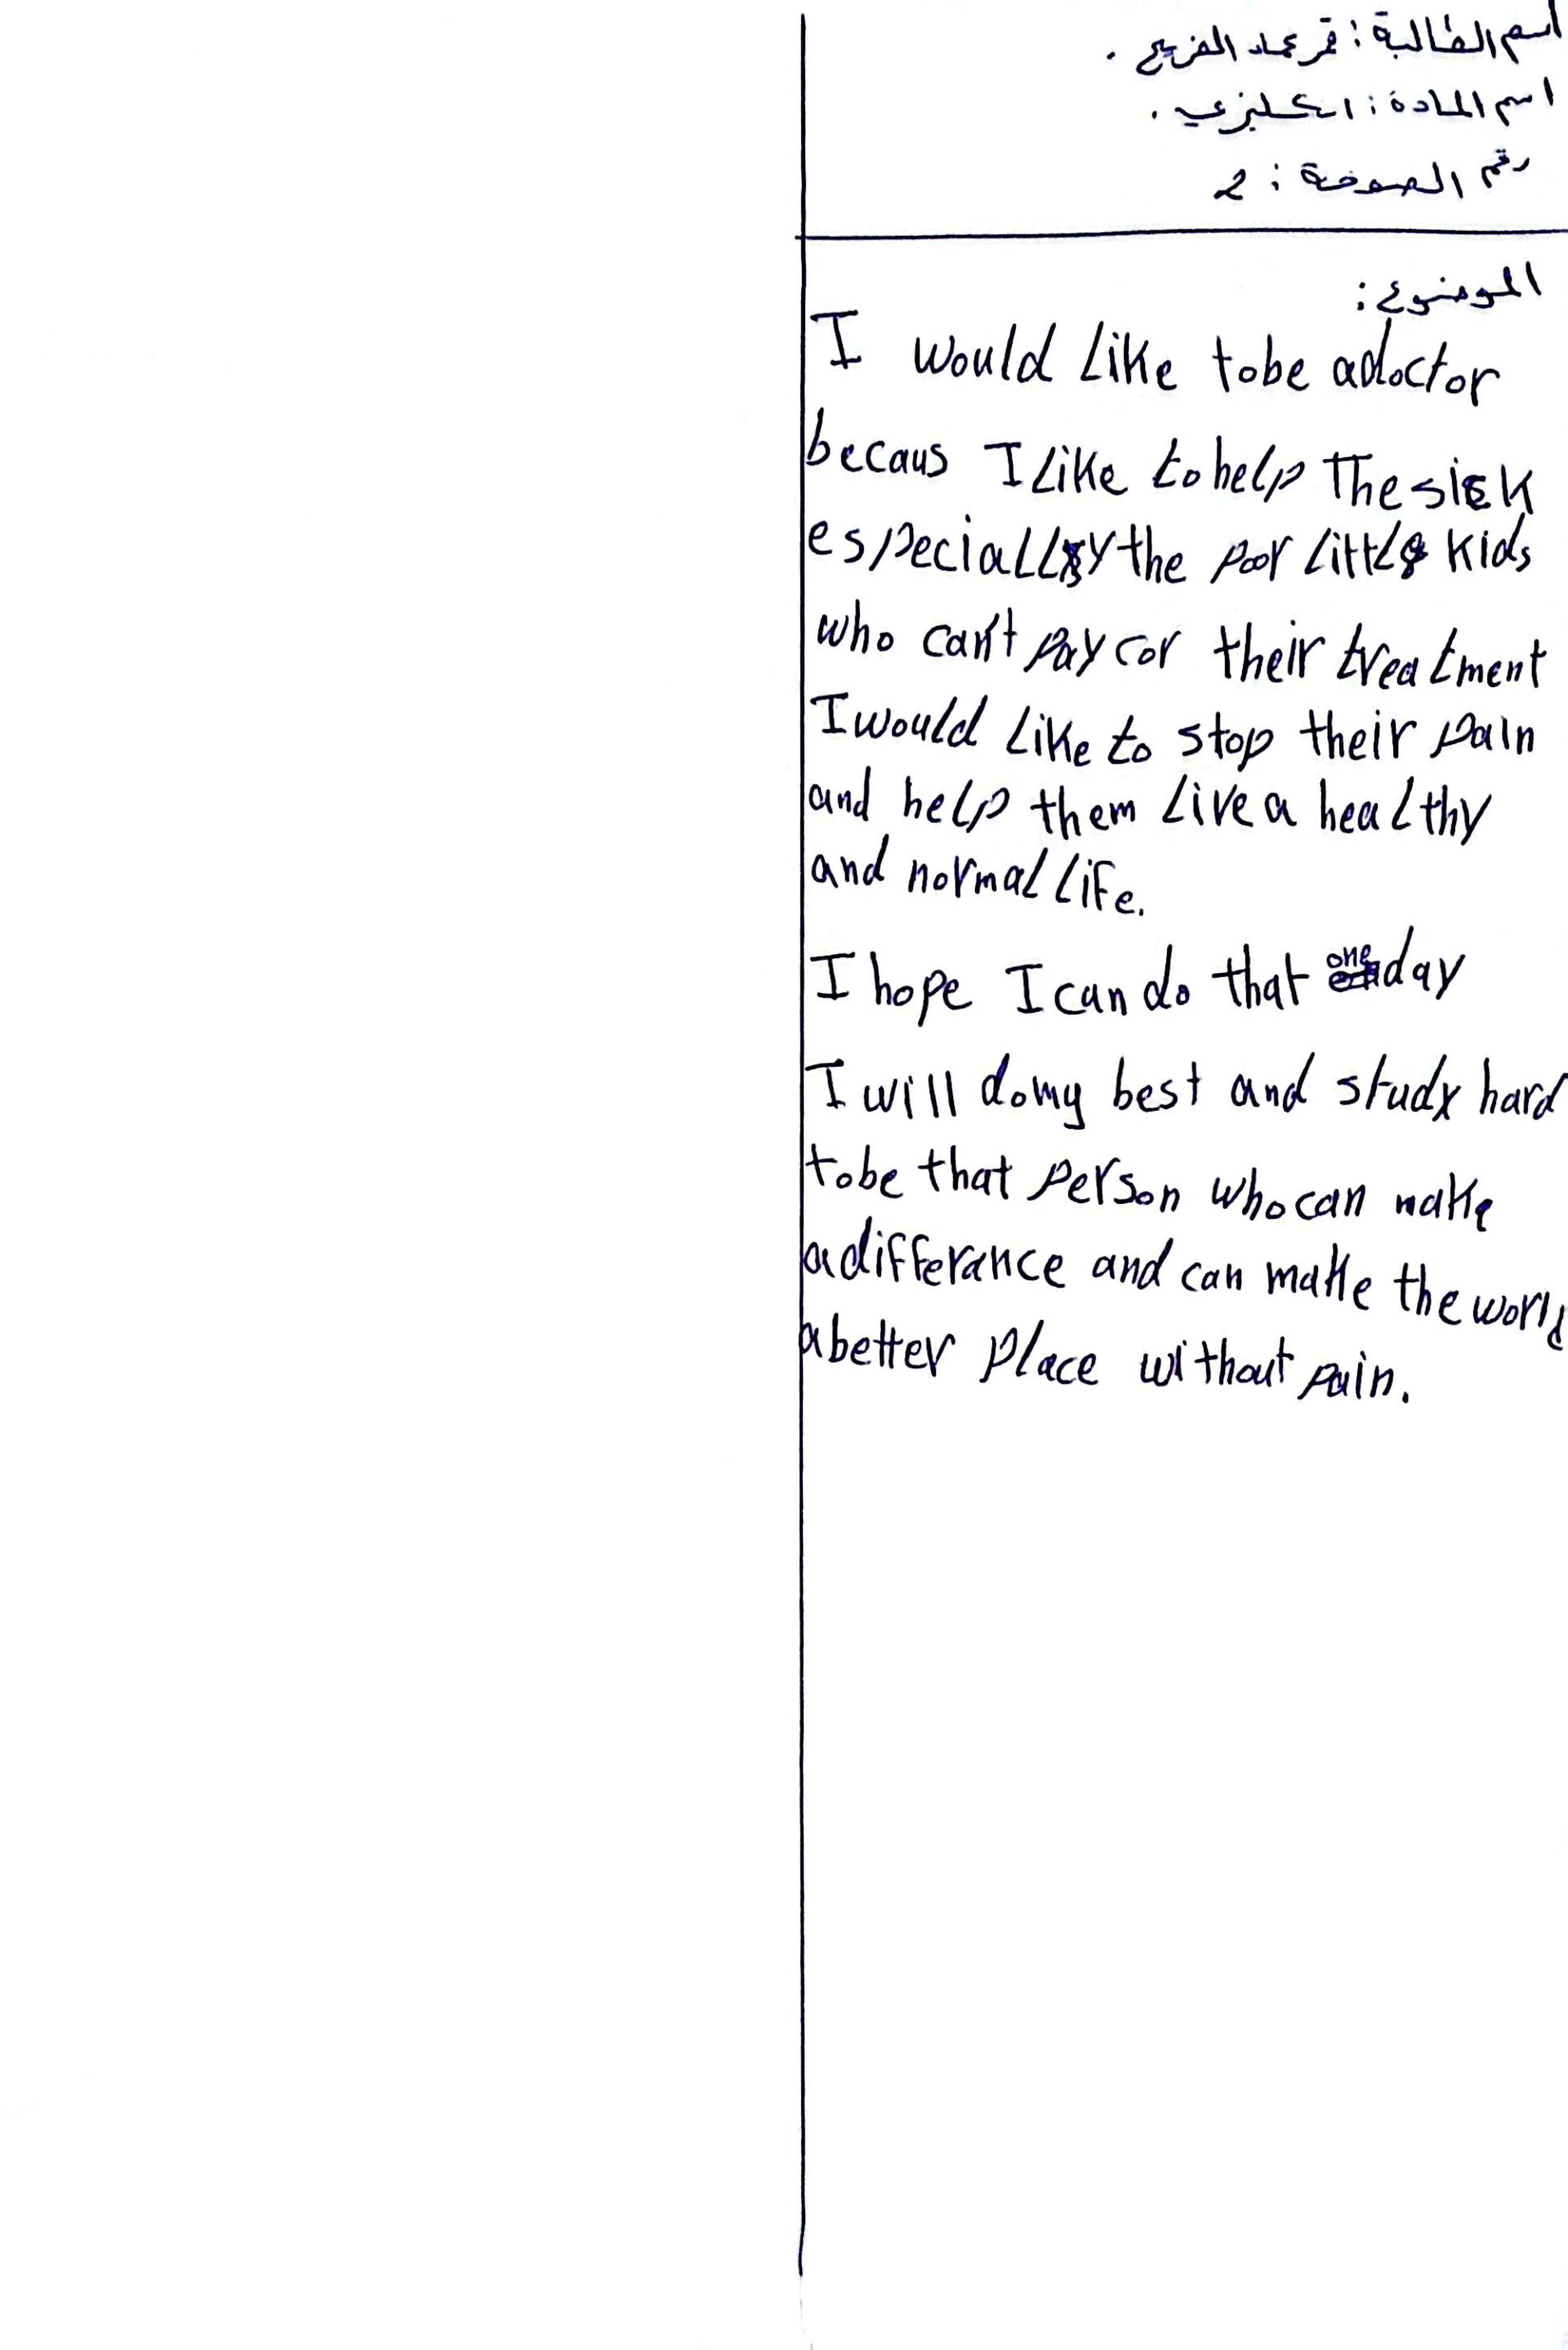 اسم الطالبة : قمر عماد الفريج .
اسم المادة : انكليزي .
رقم الصفحة : 2
الموضوع :
I would like tobe adoctor
becaus I like to help The sick
especially the poor little kids
who can't pay cor their treatment
I would like to stop their pain
and help them live a healthy
and normal life.
I hope I can do that one day
I will do my best and study hard
tobe that person who can make
a differance and can make the world
a better place without pain.